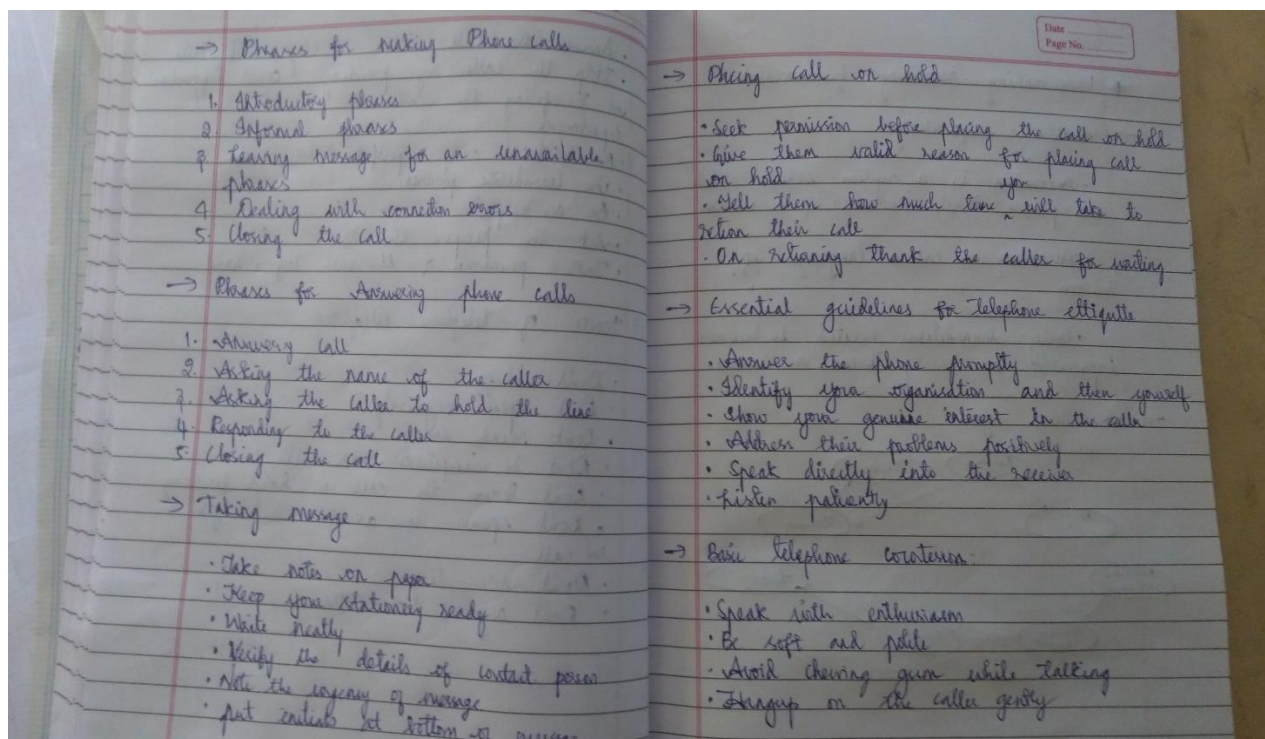 → Phrases for making Phone calls
1. Introductory phrases
2 Informal phrases
3 Leaving message for an unavailable
phrases
4 Dealing with connection errors
5. Closing the call
→ Phrases for Answering phone calls
1. Answering call
2. Asking the name of the caller
3. Asking the caller to hold the line
4. Responding to the caller
5. Closing the call
→ Taking message
• Take notes on paper
• Keep your stationery ready
• Write neatly
• Verify the details of contact person
• Note the urgency of message
• put initials at bottom of message
Date
Page No.
→ Placing call on hold
• Seek permission before placing the call on hold
• Give them valid reason for placing call
on hold
• Tell them how much time you will take to
retion their call
• On retianing thank the caller for waiting
→ Essential guidelines for telephone ettiqutte
• Answer the phone promptly
• Identify your organisation and then yourself
• Show your genuine interest in the caller
• Address their problems positively
• Speak directly into the receiver
• Listen patiently
→ Basic telephone
• Speak with enthusiasm
• Be soft and polite
• Avoid chewing gum while talking
• Hangup on the caller gently